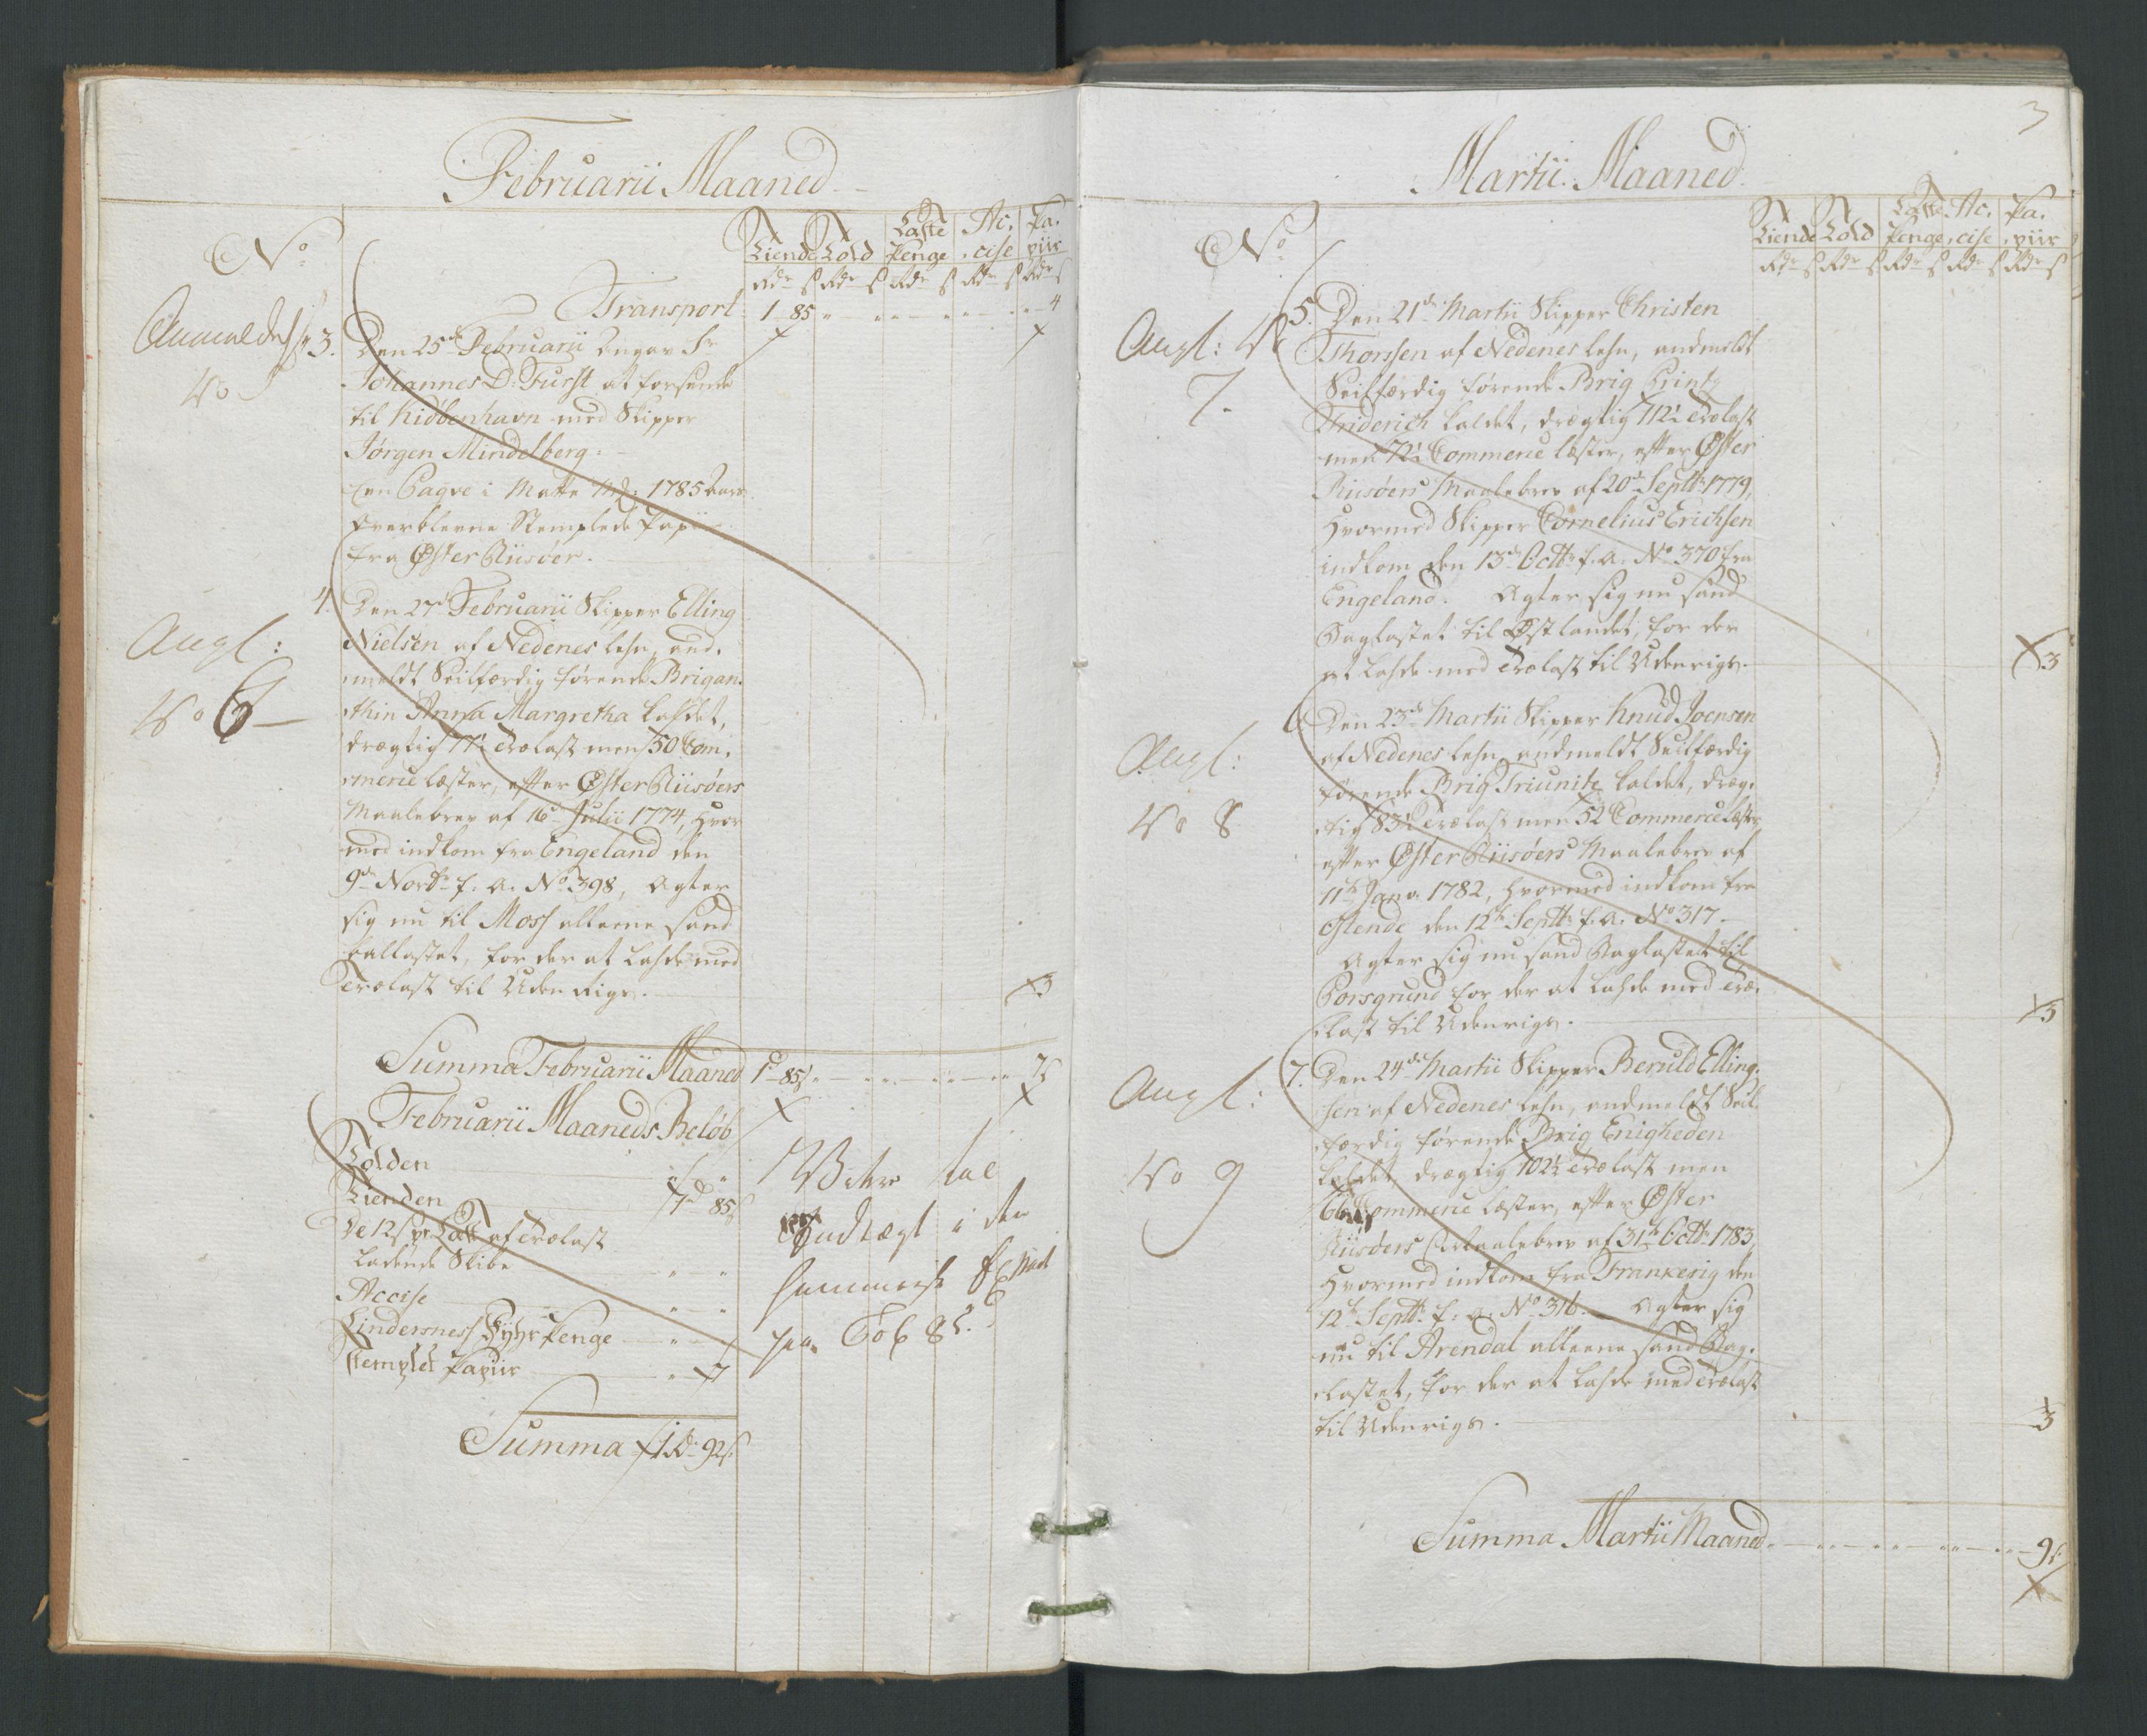 Februarii Maaned
No
Tiende Told Laste Penge Ac.cise Pa.piir
Rdr s Rdr s Rdr s Rdr s Rdr s
Transport 1 85 4
3. Den 25de Februarii Angav Sr
No 5
Johannes D: Furst at forsende
til Kiøbenhavn med Skipper
Jørgen Mindelberg:
Een Paqve i Matte 1785 Aars
Overblevne Stemplede Papiir
fra Øster Riisøer.
4. Den 27de Februarii Skipper Elling
Angl:
Nielsen af Nedenes Lehn, and-
meldt Seilfærdig førende Brigan-
No 6
thin Anna Margretha kaldet,
drægtig 77½ Trælast men 50 Com-
mercelæster, efter Øster Riisøers
Maalebrev af 16de Julii 1774, hvor
med indkom fra Engeland den
9de Novbr f. a. No 398, Agter
sig nu til Moss alleene sand
ballastet, for der at lade med
Trælast til Uden Rigs. 3
Summa Februarii Maaned 1 85 7
Februarii Maaneds Beløb
Tolden
Tienden 1 85
De 12 s pr Læst af Trælast
ladende Skibe
Accise
Lindersness Fyhr Penge
Stemplet Papiir 7
Summa 1 92 s
indtægt i den
paa Fol 8
3
Martii Maaned
No
Tiende Told Laste Penge Ac.cise Pa.piir
Rdr s Rdr s Rdr s Rdr s Rdr s
5. Den 21de Martii Skipper Christen
Angl: No 7
Thorssen af Nedenes Lehn, andmeldt
Seilfærdig førende Brig Printz
Friderich kaldet, drægtig 112½ Trælast
men 72½ Commerce læster, efter Øster
Riisøers Maalebrev af 20de Septbr 1779,
Hvormed Skipper Cornelius Erichsen
indkom den 13de Octbr f. a. No 370 fra
Engeland. Agter sig nu sand
Baglastet til Østlandet, for der
at lade med Trælast til Udenrigs. 3
6. Den 23de Martii Skipper Knud Joensen
Angl:
af Nedenes Lehn, andmeldt Seilfærdig
førende Brig Triunitz kaldet, dræg-
No 8
tig 83½ Trælast men 52 Commercelæster
efter Øster Riisøers Maalebrev af
11te Janv. 1782, hvormed indkom fra
Ostende den 12te Septbr f. a. No 317.
Agter sig nu sand Baglastet til
Porsgrund for der at lade med Træ-
last til Udenrigs. 3
7. Den 24de Martii Skipper Beruld Elling-
Angl:
sen af Nedenes Lehn, andmeldt Seil-
færdig førende Brig Enigheden
No 9
kaldet, drægtig 102½ Trælast men
66 Commerce læster, efter Øster
Riisøers Maalebrev af 31te Octbr 1783,
Hvormed indkom fra Frankerig den
12te Septbr f. a. No 316. Agter sig
nu til Arendal alleene sand Bag-
lastet, for der at lade med Trælast
til Udenrigs. 3
Summa Martii Maaned 9 s